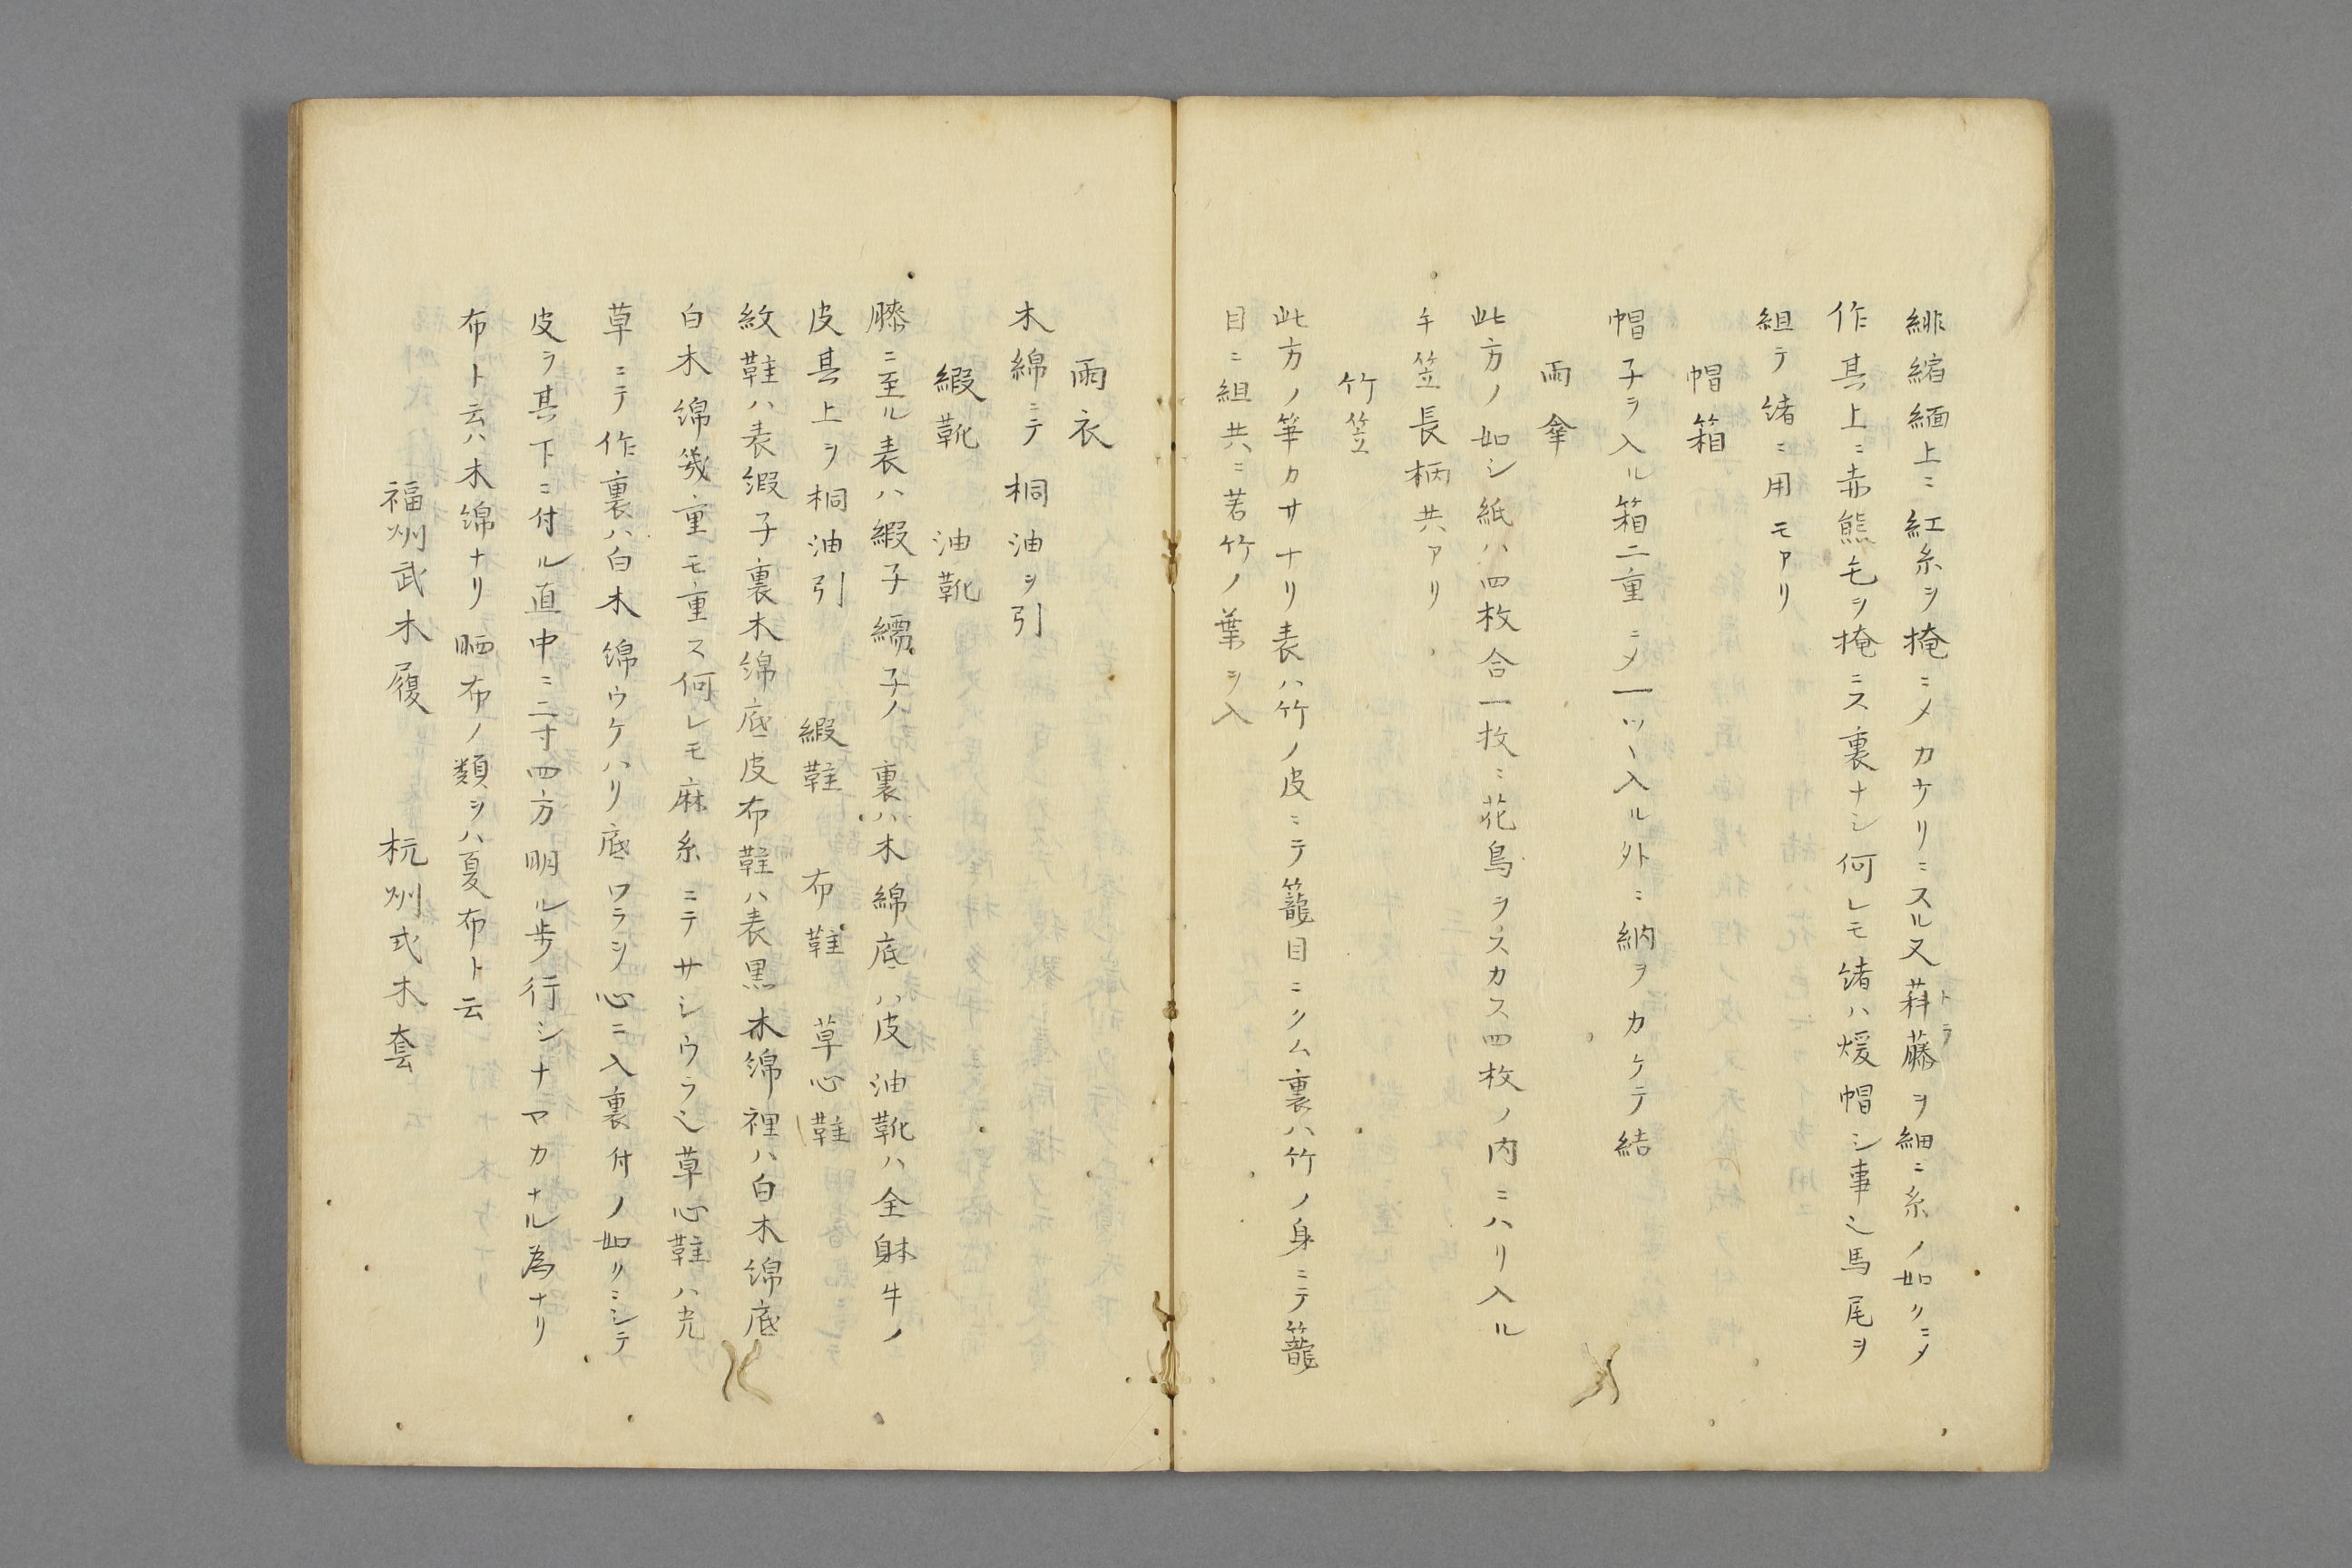 緋縮緬上ニ紅糸ヲ掩ニメカケリニスル又䔧藤ヲ細ニ糸ノ如クニメ
トラ
作其上ニ赤熊毛ヲ掩ニス裏ナシ何レモ緒ハ煖帽シ事也馬尾ヲ
組テ緒ニ用モアリ
帽箱
帽子ヲ入ル箱二重ニメ一ツヽ入ル外ニ納ヲカケテ結
雨傘
此方ノ如シ紙ハ四枚合一枚ニ花鳥ヲスカス四枚ノ内ニハリ入ル
手笠長柄共アリ
竹笠
此方ノ筆カサナリ表ハ竹ノ皮ニテ籠目ニクム裏ハ竹ノ身ニテ籠
目ニ組共ニ若竹ノ葉ヲ入
雨衣
木綿ニテ桐油ヲ引
緞靴 油靴
膝ニ至ル表ハ緞子繻子ノ裏ハ木綿底ハ皮油靴ハ全躰牛ノ
皮其上ヲ桐油引 緞鞋 布鞋 草心鞋
紋鞋ハ表緞子裏木綿底皮布鞋ハ表黒木綿裡ハ白木綿底
白木綿幾重モ重ス何レモ麻糸ニテサシウラ也草心鞋ハ光
草ニテ作裏ハ白木綿ウケハリ底ワラシ心ニ入裏付ノ如リニシテ
皮ヲ其下ニ付ル直中ニ二寸四方明ル歩行シナヤカナル為ナリ
布ト云ハ木綿ナリ晒布ノ類ヲハ夏布ト云
福州武木履 杭州式木套